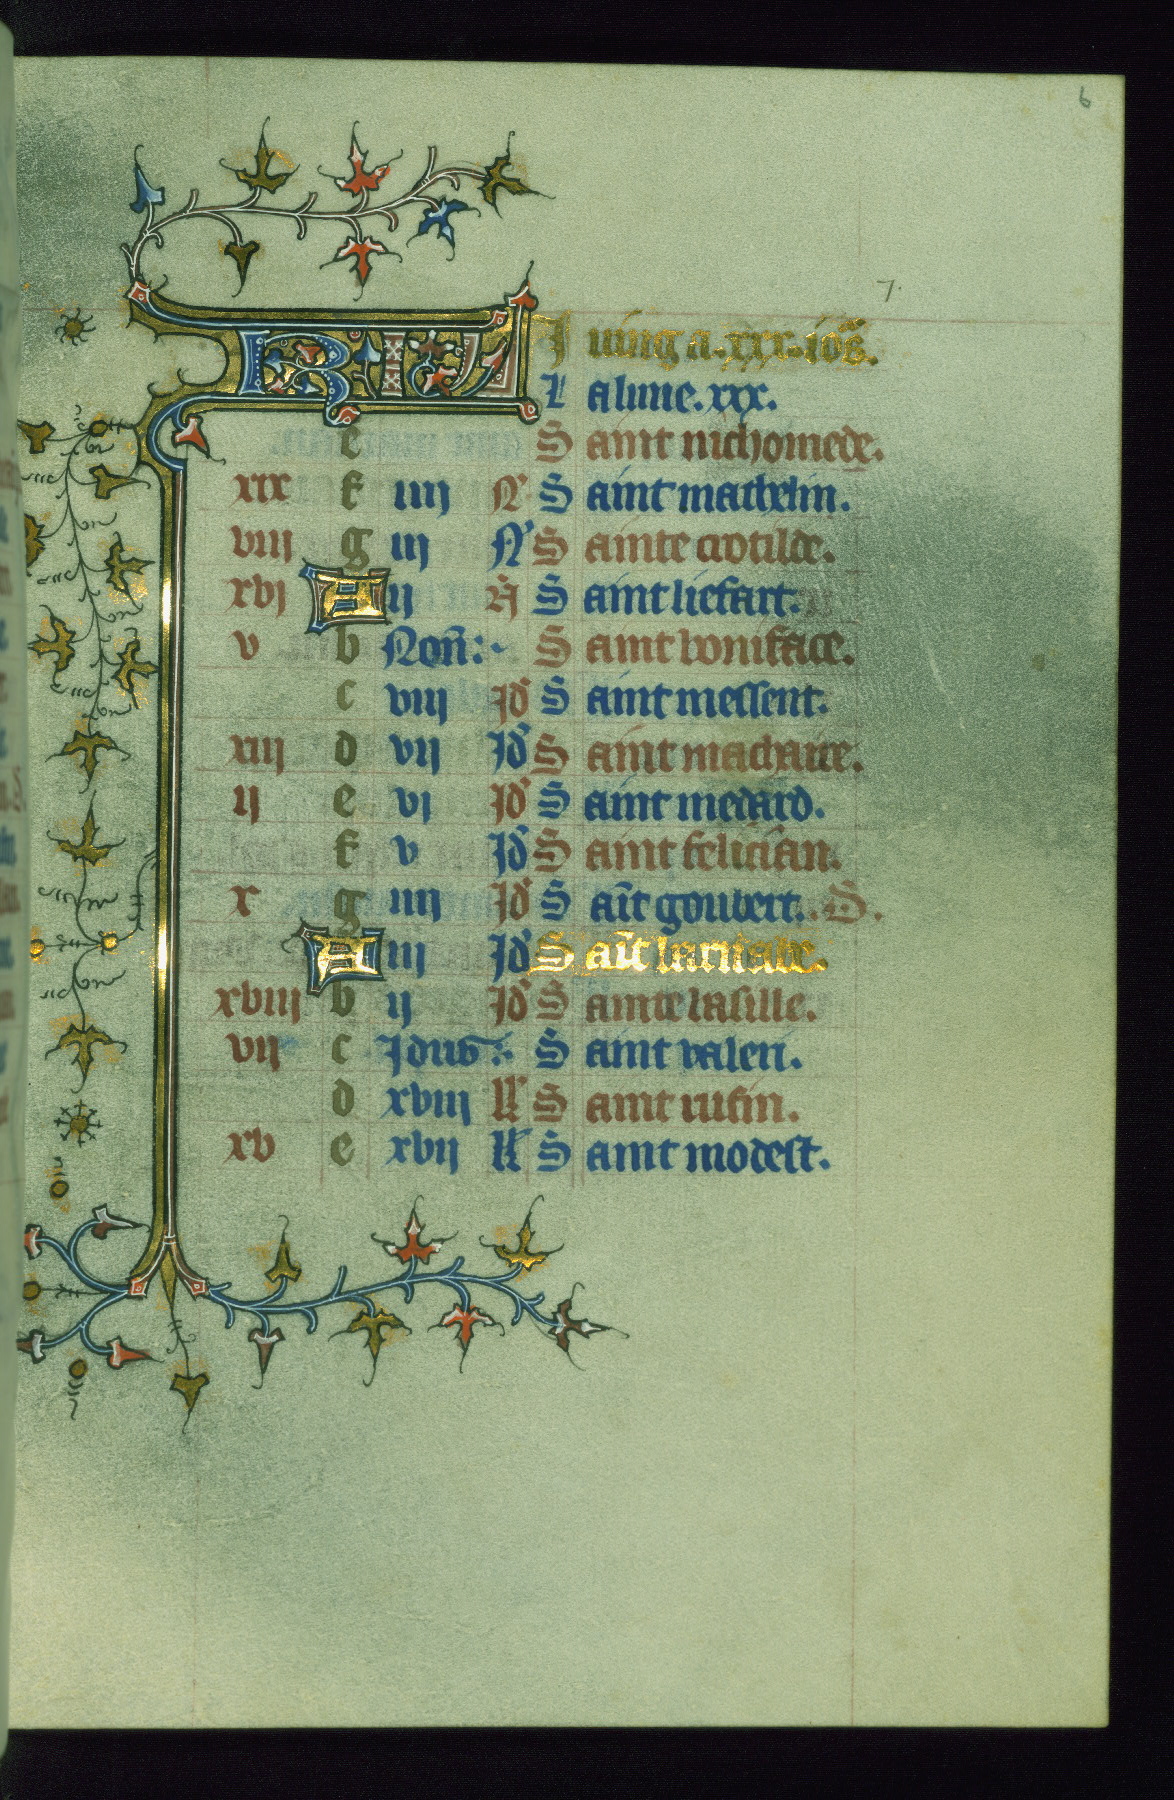 6
7.
KL Juing a .xxx. iours.
La lune .xxx.
e Saint nichomede.
xix f iiij N' Saint mathelin.
viij g iij N' Sainte crotilde.
xvj A ij N Saint liefart.
v b Non: Saint boniface.
c viij Jd' Saint messent.
xiij d vij Jd' Saint machaire.
ij e vj Jd' Saint medard.
f v Jd' Saint felician.
x g iiij Jd' Saīt gouvert. S.
A iij Jd' Saīt barnabe.
xviij b ij Jd' Sainte basille.
vij c Jdus: Saint valeri.
d xviij kl' Saint rufin.
xv e xvij kl' Saint modest.